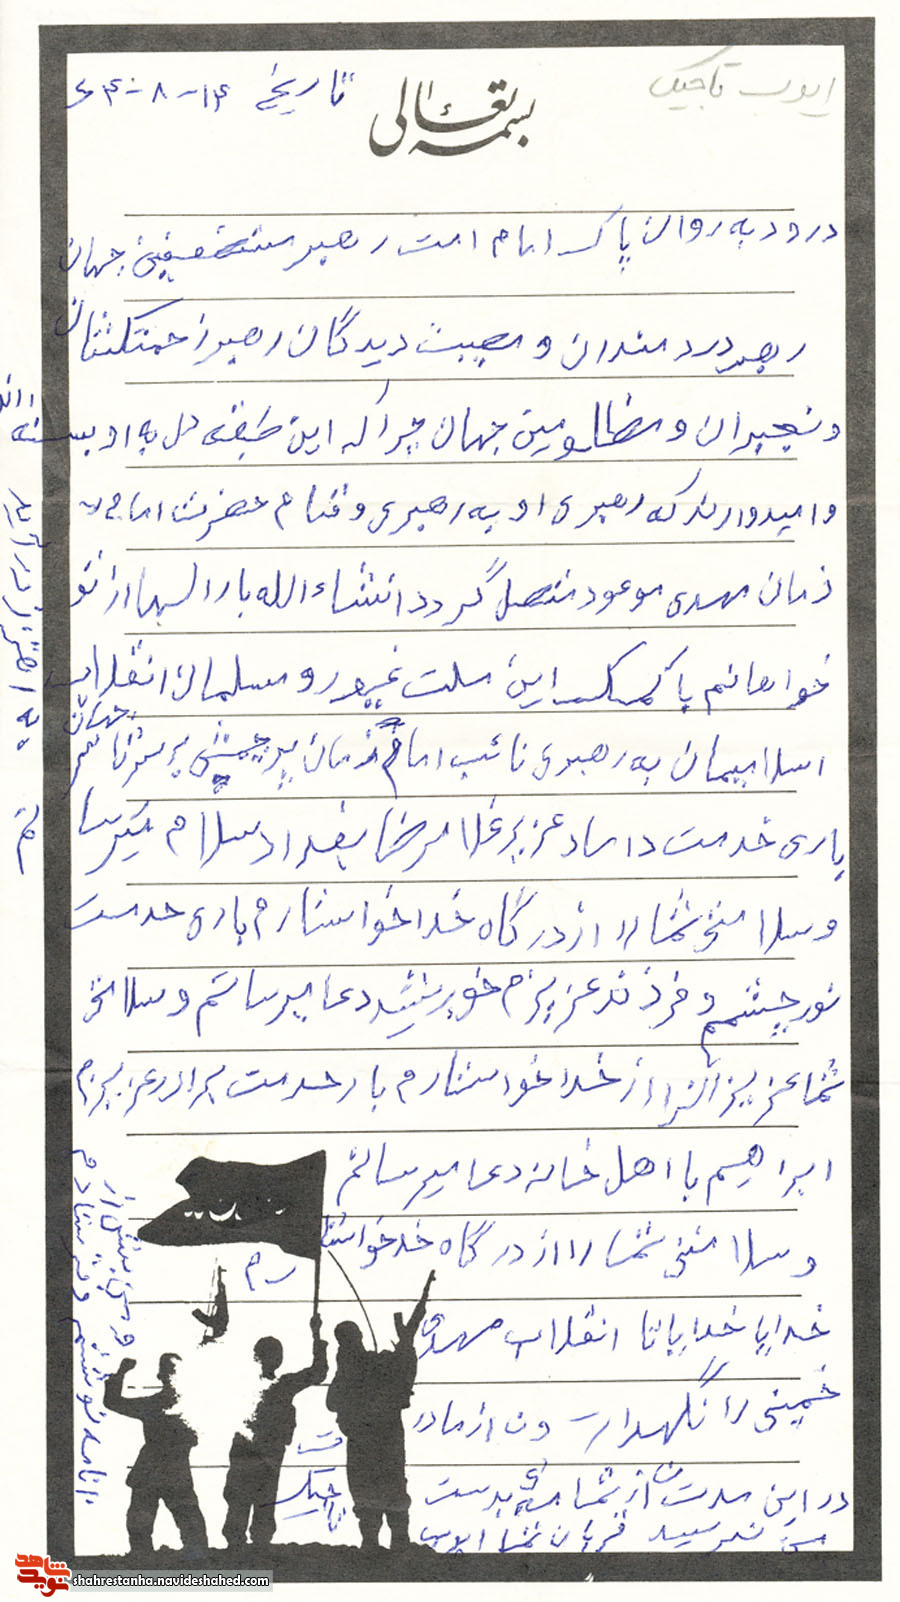 ایوب تاجیک
بسمه تعالی
تاریخ ۱۴-۸-۶۴
درود به روان پاک امام امت رهبر مستضعفین جهان
رهبر دردمندان و مصیبت دیدگان رهبر زحمتکشان
و رنجبران و مظلومین جهان چرا که این طبقه دل به او بسته اند
و امیدوارند که رهبری او به رهبری و قیام حضرت امام
زمان مهدی موعود متصل گردد انشاءالله بارالها از تو
خواهانیم با کمک این ملت غیور و مسلمان انقلاب
اسلامیمان به رهبری نائب امام زمان پرچمش بر سرتاسر جهان
به اهتزاز درآید
باری خدمت داماد عزیز غلامرضا بغداد سلام میرسا
نم
و سلامتی شما را از درگاه خدا خواستارم باری خدمت
نور چشمم و فرزند عزیزم خورشید دعا میرسانم و سلامتی
شما عزیزانرا از خدا خواستارم بار خدمت برادر عزیزم
ابراهیم با اهل خانه دعا میرسانم
و سلامتی شما را از درگاه خدا خواستا
رم
خدایا خدایا تا انقلاب مهدی
خمینی را نگهدار
در این مدت از شما بدست
نرسید قربان شما ایوب
تاجیک
نامه نوشتم و فرستادم
shahrestanha.navideshahed.com